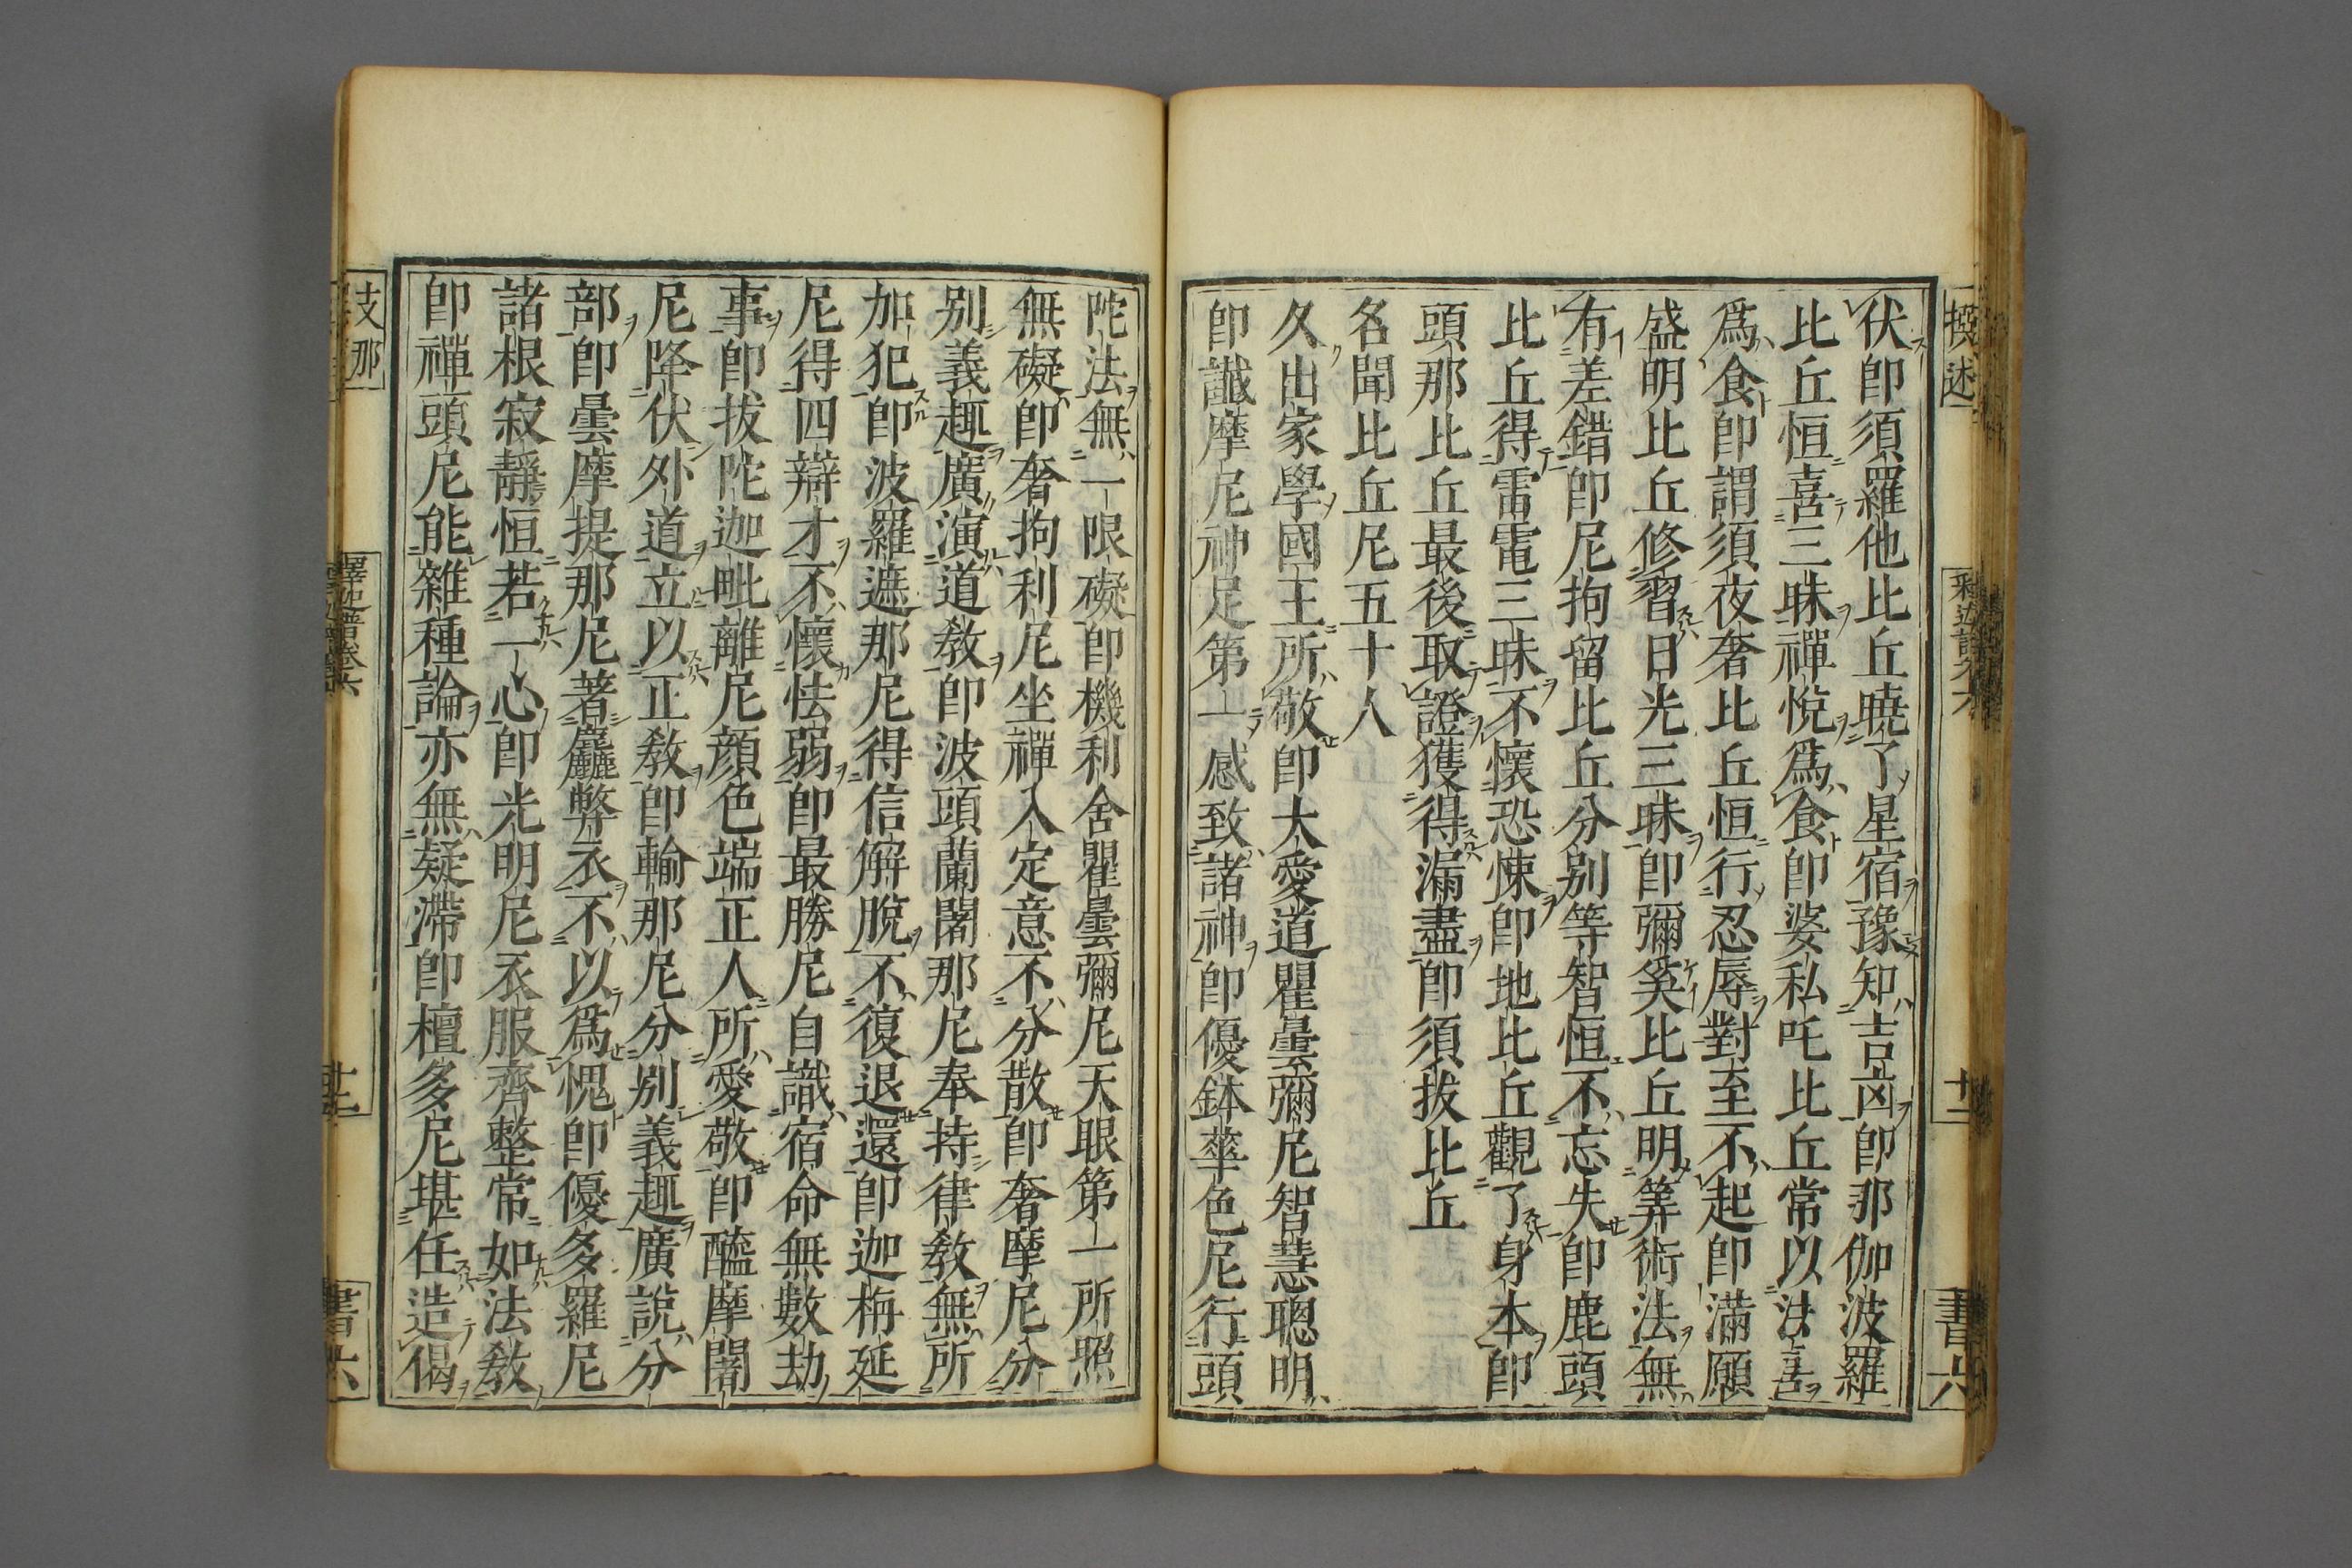 伏卽須羅他比丘曉了星宿豫知吉凶卽那伽波羅
比丘恒喜三昧禪悅爲食卽婆私吒比丘常以法喜
爲食卽謂須夜奢比丘恒行忍辱對至不起卽滿願
盛明比丘修習日光三昧卽彌奚比丘明筭術法無
有差錯卽尼拘留比丘分別等智恒不忘失卽鹿頭
比丘得雷電三昧不懷恐悚卽地比丘觀了身本卽
頭那比丘最後取證獲得漏盡卽須拔比丘
名聞比丘尼五十人
久出家學國王所敬卽大愛道瞿曇彌尼智慧聰明
卽讖摩尼神足第一感致諸神卽優鉢華色尼行頭
陀法無一限礙卽機利舍瞿曇彌尼天眼第一所照
無礙卽奢拘利尼坐禪入定意不分散卽奢摩尼分
別義趣廣演道教卽波頭蘭闍那尼奉持律教無所
加犯卽波羅遮那尼得信解脫不復退還卽迦栴延
尼得四辯才不懷怯弱卽最勝尼自識宿命無數劫
事卽拔陀迦毗離尼顏色端正人所愛敬卽醯摩闍
尼降伏外道立以正教卽輸那尼分別義趣廣說分
部卽曇摩提那尼著麤弊衣不以爲愧卽優多羅尼
諸根寂靜恒若一心卽光明尼衣服齊整常如法教
卽禪頭尼能雜種論亦無疑滯卽檀多尼堪任造偈
撰述
十二
書六
支那
釋迦譜卷六
書六